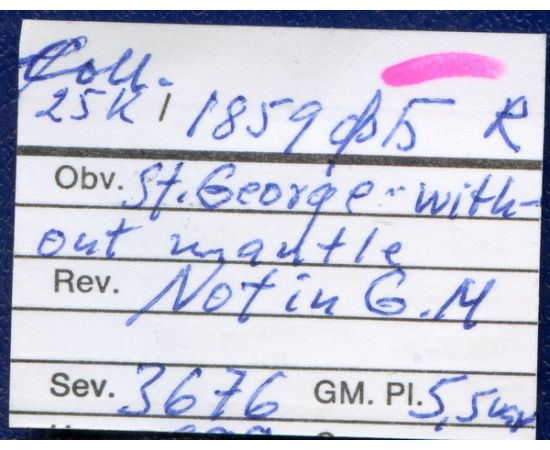 Coll.
25K / 1859 фБ R
Obv. St. George - with-
out mantle
Rev. Not in G.M
Sev. 3676 GM. Pl. 5,5